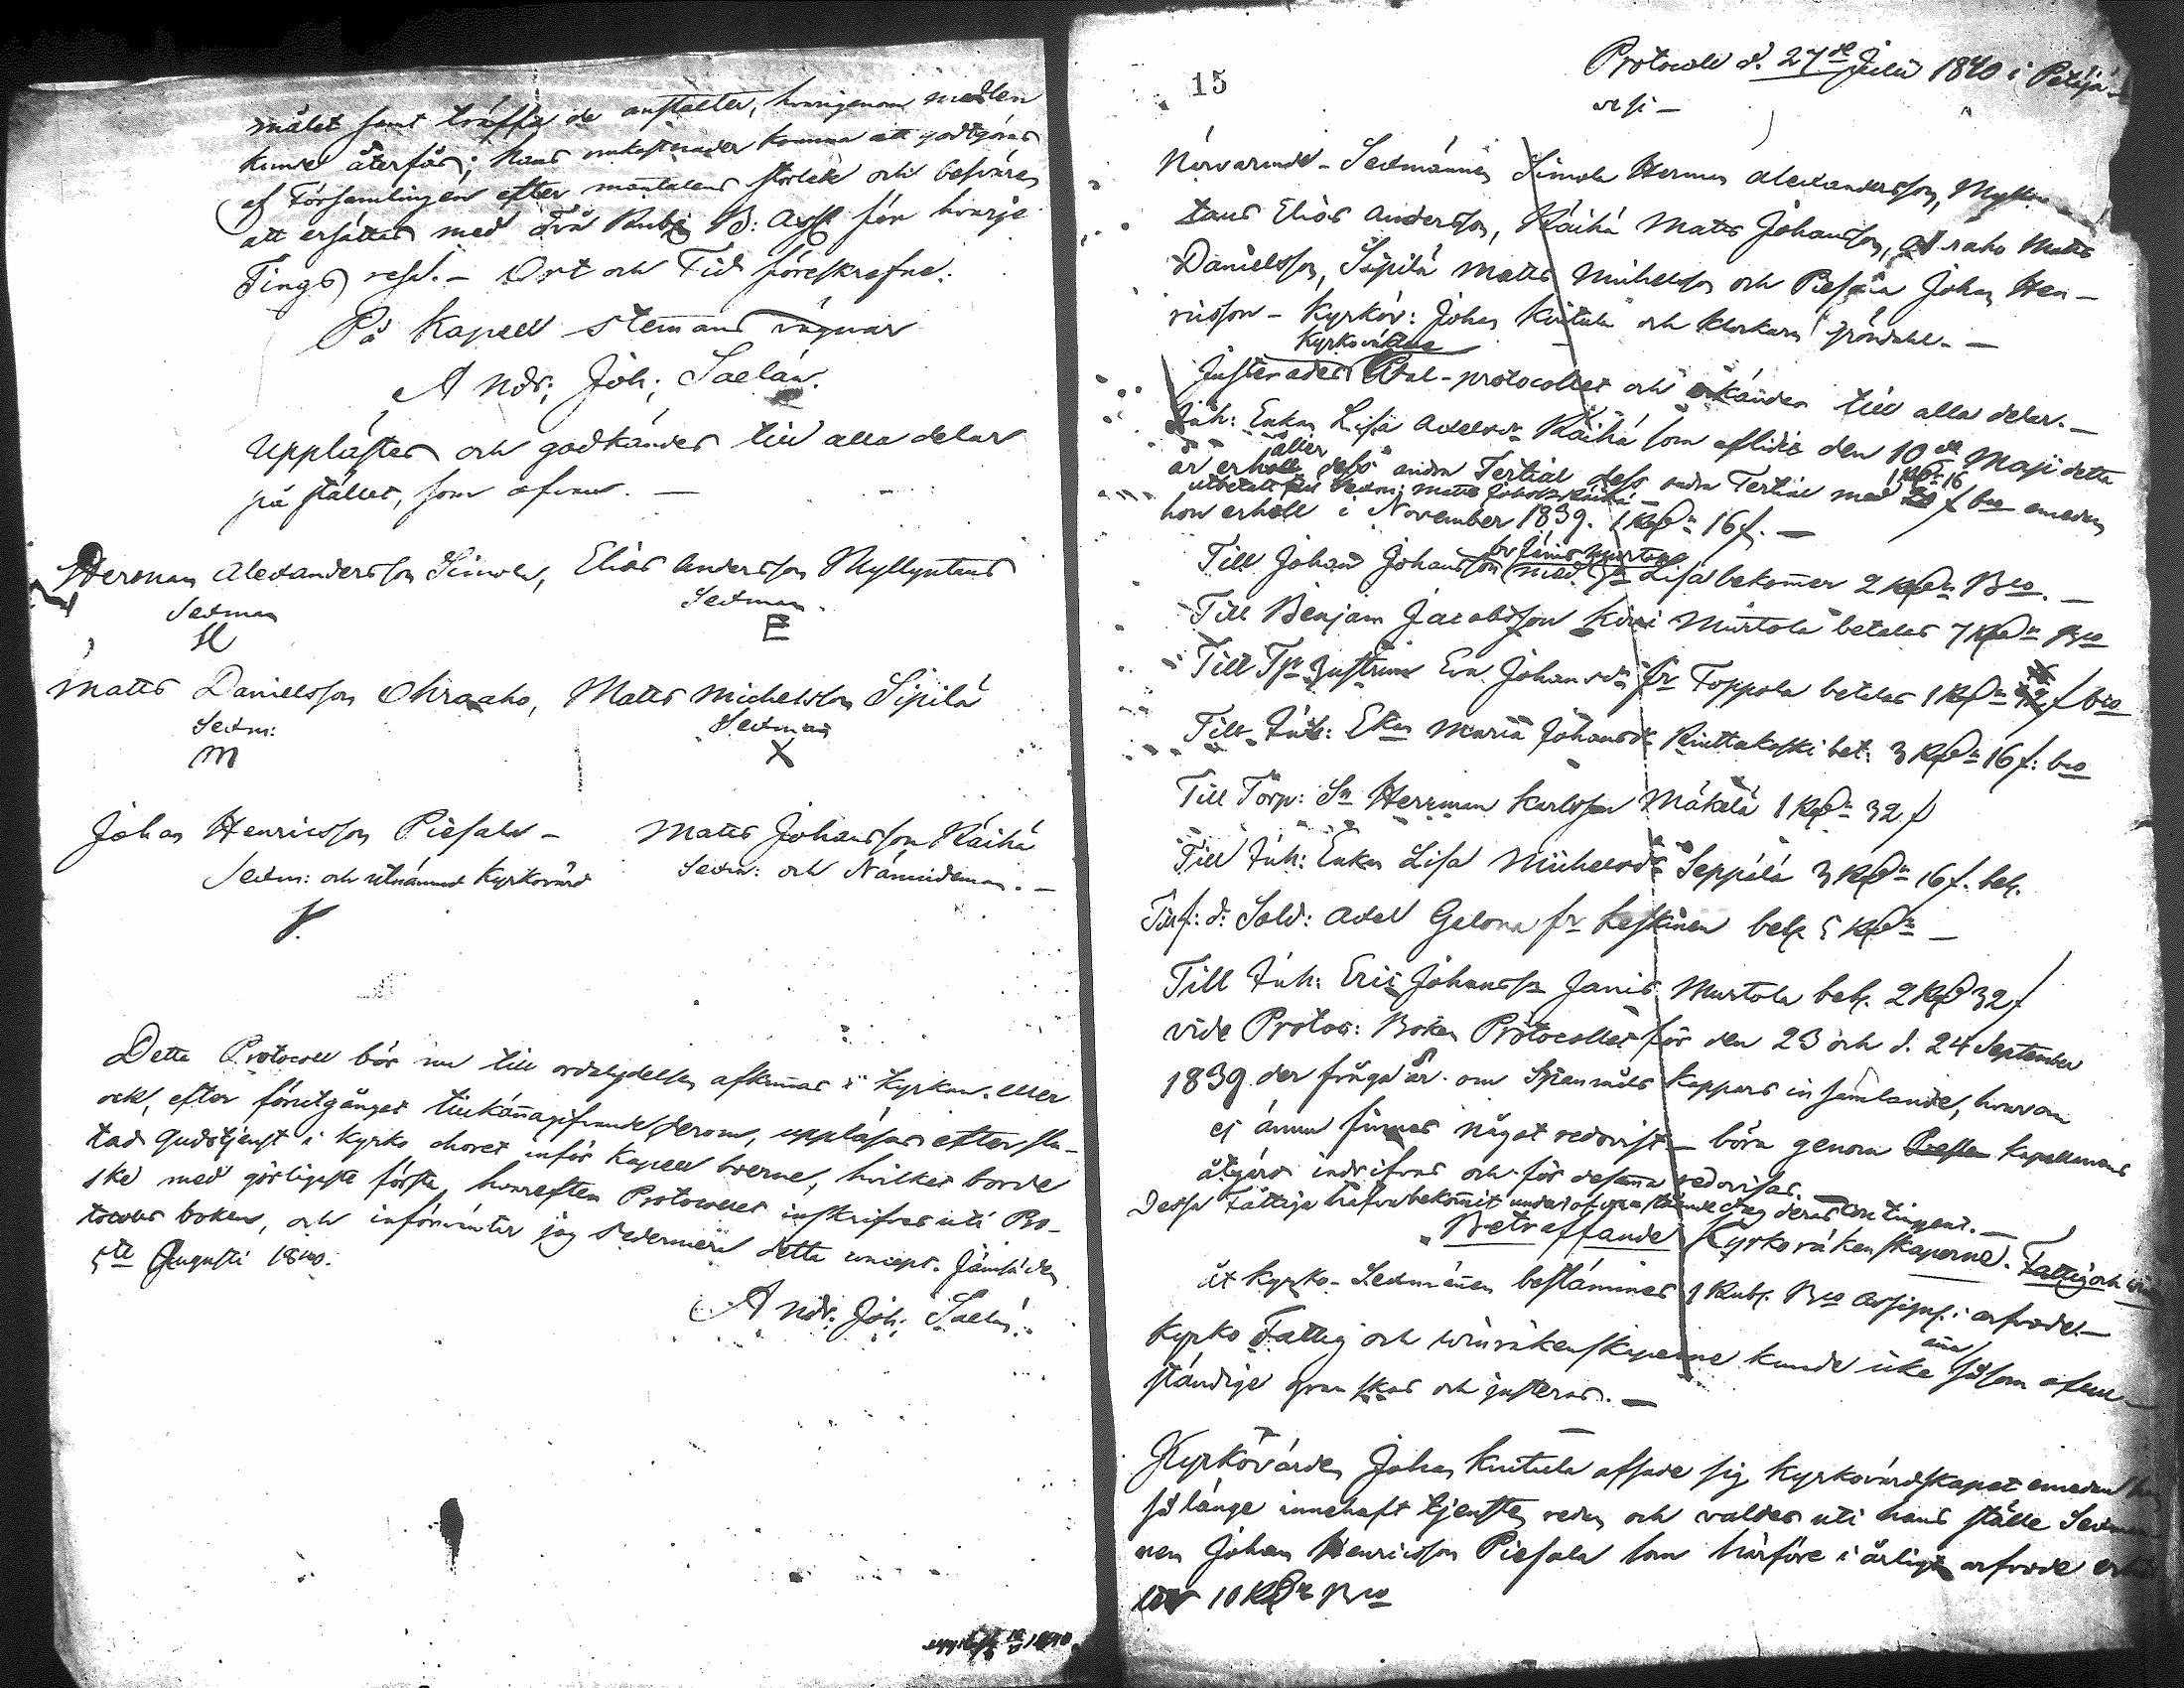 målet samt träffa de anstalter, hvarigenom medlen
kunde återfås; hans omkostnader komma att godtgöras
af Församlingen efter mantalens storlek och besvären
att ersättas med Två Rub. B: Ass för hvarje
Tings resa. – Ort och Tid föreskrefne.
På Kapell stemmans vägnar
Andr: Joh: Saelán.
Upplästes och godkändes till alla delar
på stället, som ofvan. —
Herman Alexandersson Simola, Elias Andersson Myllyntaus
Sexman Sexman.
H E
Matts Danielsson Ohraaho, Matts Michelsson Sipilä
Sexm: Sexman
M X
Johan Henricsson Piesala – Matts Johansson Räihä
Sexm: och utnämnd Kyrkovärd Sexm: och Nämndeman. –
Detta Protocoll bör nu till ordalydelsen afkunnas i Kyrkan. eller
ock, efter förutgånget tillkännagifvande derom, uppläsas efter slu-
tad Gudstjenst i Kyrko choret inför Kapell boerne, hvilket borde
ske med görligaste första, hvarefter Protocollet inskrifves uti Pro-
tocolls boken, och införväntar jag sedermera detta concept. Jämsä den
5te Augusti 1840.
Andr: Joh: Saelán.
1840
15
Protocoll d. 27de Julii 1840 i Petäjä-
vesi –
Närvarande – Sexmännen Simola Herman Alexandersson, Myllyn-
taus Elias Andersson, Räihä Matts Johansson, Ohraho Matts
Danielsson, Sipilä Matts Michelsson och Piesala Johan Hen-
ricsson – Kyrkov: Johan Kintula och Klockaren Gröndahl. —
Kyrkovärds
Justerades Val-protocollet och erkändes till alla delar. —
Inh: Enkan Lisa Axelsdr Räihä som aflidit den 10de Maji detta
år erhåller dess andra Tertial dess andra Tertial med 1 Rub 16 f bco emedan
utbetalt till Sexm: Matts Johanss Räihä
hon erhöll i November 1839. 1 Rub 16 f. —
fr Jänis Murtola
Till Johan Johansson med Lisa bekommer 2 Rub Bco. —
Till Benjam Jacobsson Kivi Murtola betalas 7 Rub Bco
Till Eva Johansdr fr Toppola betalas 1 Rub f bco
Till Inh: Ekan Maria Johansdr Riuttakoski bet: 3 Rub 16 f: bco
Till Torp: Sn Herrman Karlsson Mäkelä 1 Rub 32 f
Till Inh: Enkan Lisa Michelsdr Seppälä 3 Rub 16 f. bek.
Till f: d: Sold: Axel Gelona fr Keskinen bek. 5 Rub —
Till Inh: Eric Johanss Janis Murtola bek. 2 Rub 32 f
vide Protoc: Boken Protocollet för den 23 och d. 24 September
1839 der fråga är om Spanmåls Kappars insamlande, hvarom
ej ännu finnes något redovist – böra genom Kapellmans
åtgärd indrifvas och för desamma redovisas.
Dessa Fattiga hafva bekommit under ofvanstående dag deras contingent. —
Beträffande Kyrko räkenskaperne. Fattig och
åt Kyrko – Sexmännen bestämmes 1 Rub. Bco Assign. i arfvode. —
Kyrko Fattig och winräkenskaperne kunde icke ännu såsom ofull-
ständige granskas och justeras. —
Kyrkovärden Johan Kintula afsade sig Kyrkovärdskapet emedan han
så länge innehaft tjensten redan och valdes uti hans ställe Sexman-
nen Johan Henricsson Piesala som härföre i årligt arfvode erhål-
ler 10 Rub Bco